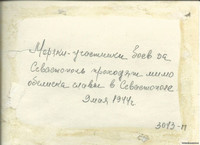 Моряки-участники боев за
Севастополь проходят мимо
обелиска славы в Севастополе
9 мая 1944 г.
3093-п